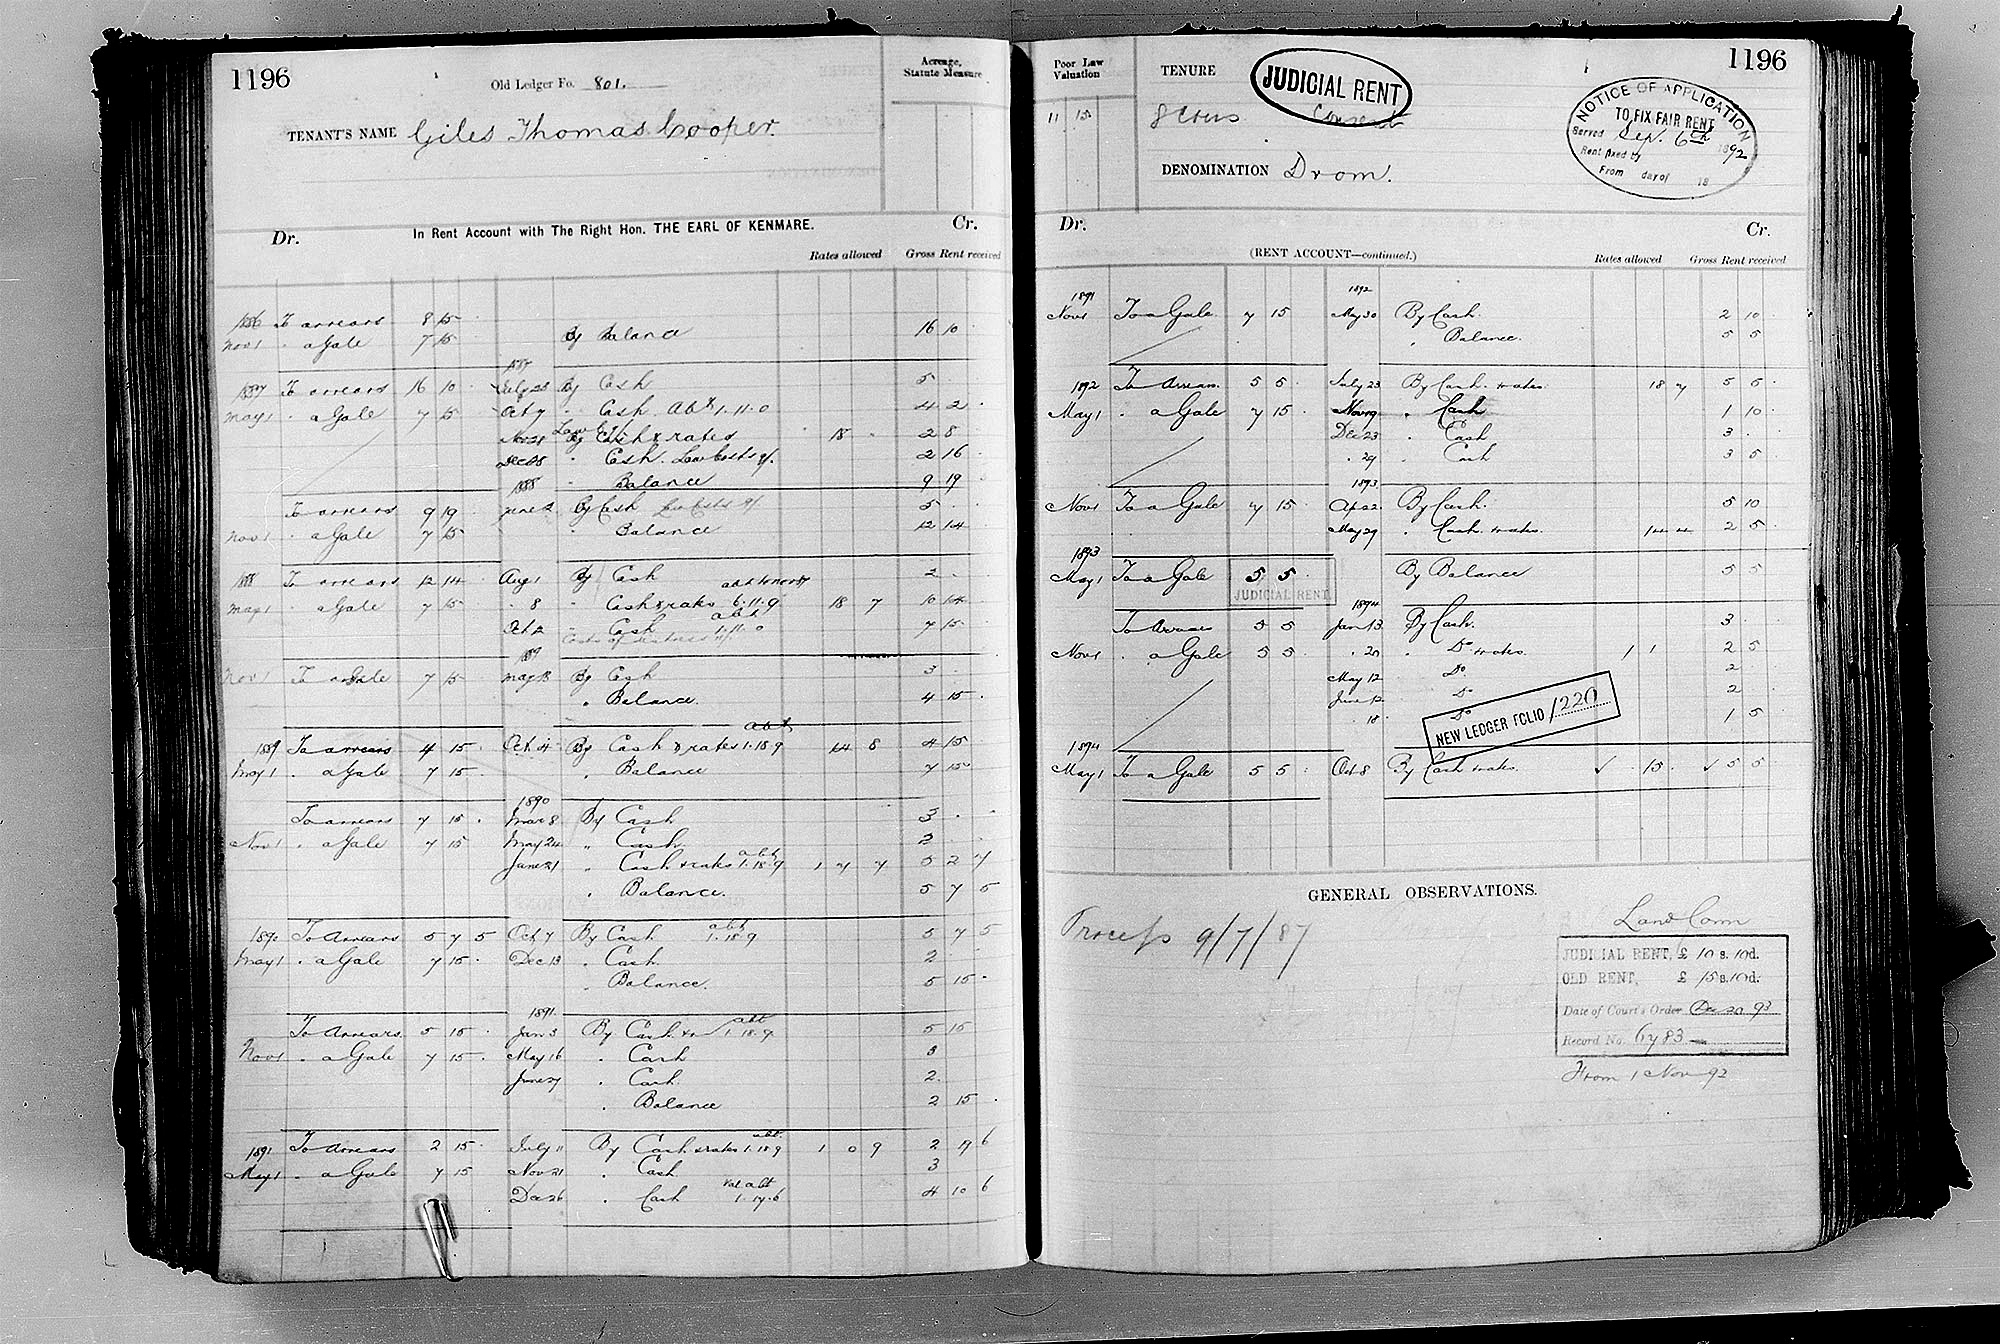 1196
Old Ledger Fo. 801.
Acreage, Statute Measure
TENANT'S NAME Giles Thomas Cooper.
In Rent Account with The Right Hon. THE EARL OF KENMARE.
Dr. Cr.
Rates allowed Gross Rent received
1886 To arrears 8 15
Nov 1 " a Gale 7 15 By Balance 16 10
1887 To arrears 16 10 1887 July 23 By Cash 5
May 1 " a Gale 7 15 Oct 7 " Cash Abt 1.11.0 4 2
Nov 28 By Cash & rates 18 - 2 8
Dec " Cash. Law Costs 2 16
" Balance 9 19
1888
To arrears 9 19 June 2 By Cash Law Costs 5
Nov 1 " a Gale 7 15 " Balance 12 14
1888 To arrears 12 14 Aug 1 By Cash 2
May 1 " a Gale 7 15 " 8 " Cash & rates 6.11.9 18 7 10 14
Oct 2 " Cash abt 1.11.0 7 15
1889
Nov 1 To a Gale 7 15 May 18 By Cash 3
" Balance. 4 15
1889 To arrears 4 15 Oct 4 By Cash & rates abt 1.18.9 14 8 4 15
May 1 " a Gale 7 15 " Balance 7 15
1890
To arrears 7 15 Mar 8 By Cash 3
Nov 1 " a Gale 7 15 May 24 " Cash 2
June 21 " Cash & rates abt 1.18.9 1 7 7 5 2 7
" Balance. 5 7 5
1890 To Arrears 5 7 5 Oct 7 By Cash abt 1.18.9 5 7 5
May 1 " a Gale 7 15 Dec 13 " Cash 2
" Balance. 5 15
1891.
To Arrears 5 15 Jan 3 By Cash abt 1.18.9 5 15
Nov 1 " a Gale 7 15 May 16 " Cash 3
June 27 " Cash 2
" Balance 2 15
1891 To Arrears 2 15 July 11 By Cash & rates abt. 1.18.9 1 0 9 2 19 6
May 1 " a Gale 7 15 Nov 21 " Cash 3
Dec 26 " Cash Val abt 1.17.6 4 10 6
1196
Poor Law Valuation
11 15
TENURE
JUDICIAL RENT
NOTICE OF APPLICATION
TO FIX FAIR RENT
Served Sep. 6th 1892
Rent fixed by
From day of 18
DENOMINATION Drom.
Dr. Cr.
(RENT ACCOUNT—continued.)
Rates allowed Gross Rent received
1891 1892
Nov 1 To a Gale 7 15 May 30 By Cash. 2 10
" Balance. 5 5
1892 To Arrears 5 5 July 23 By Cash rates 18 7 5 5
May 1 " a Gale 7 15 Nov 19 " Cash 1 10
Dec 23 " Cash 3
" 29 " Cash 3 5
1893
Nov 1 To a Gale 7 15 Ap 22 By Cash. 5 10
May 29 " Cash rates 14 4 2 5
1893
May 1 To a Gale 5 5 By Balance 5 5
JUDICIAL RENT.
1894
To Arrears 5 5 Jan 13 By Cash. 3
Nov 1 " a Gale 5 5 " 20 " Do rates 1 1 2 5
May 12 Do 2
June 12 Do 2
" 18 Do 1 5
NEW LEDGER FOLIO 1220
1894
May 1 To a Gale 5 5 Oct 8 By Cash rates ✓ 15 ✓ 5 5
GENERAL OBSERVATIONS.
Process 9/7/87
Land Com
JUDICIAL RENT, £ 10 s. 10 d.
OLD RENT, £ 15 s. 10 d.
Date of Court's Order Dec 20 93
Record No. 6783
From 1 Nov 92